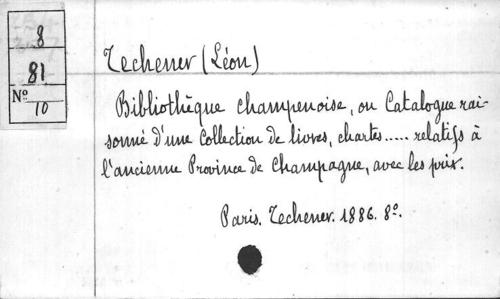 8
81
Nº
10
Techener (Léon)
Bibliothèque champenoise, ou Catalogue rai-
sonné d'une Collection de livres, chartes..... relatifs à
l'ancienne Province de Champagne, avec les prix.
Paris. Techener. 1886. 8º.